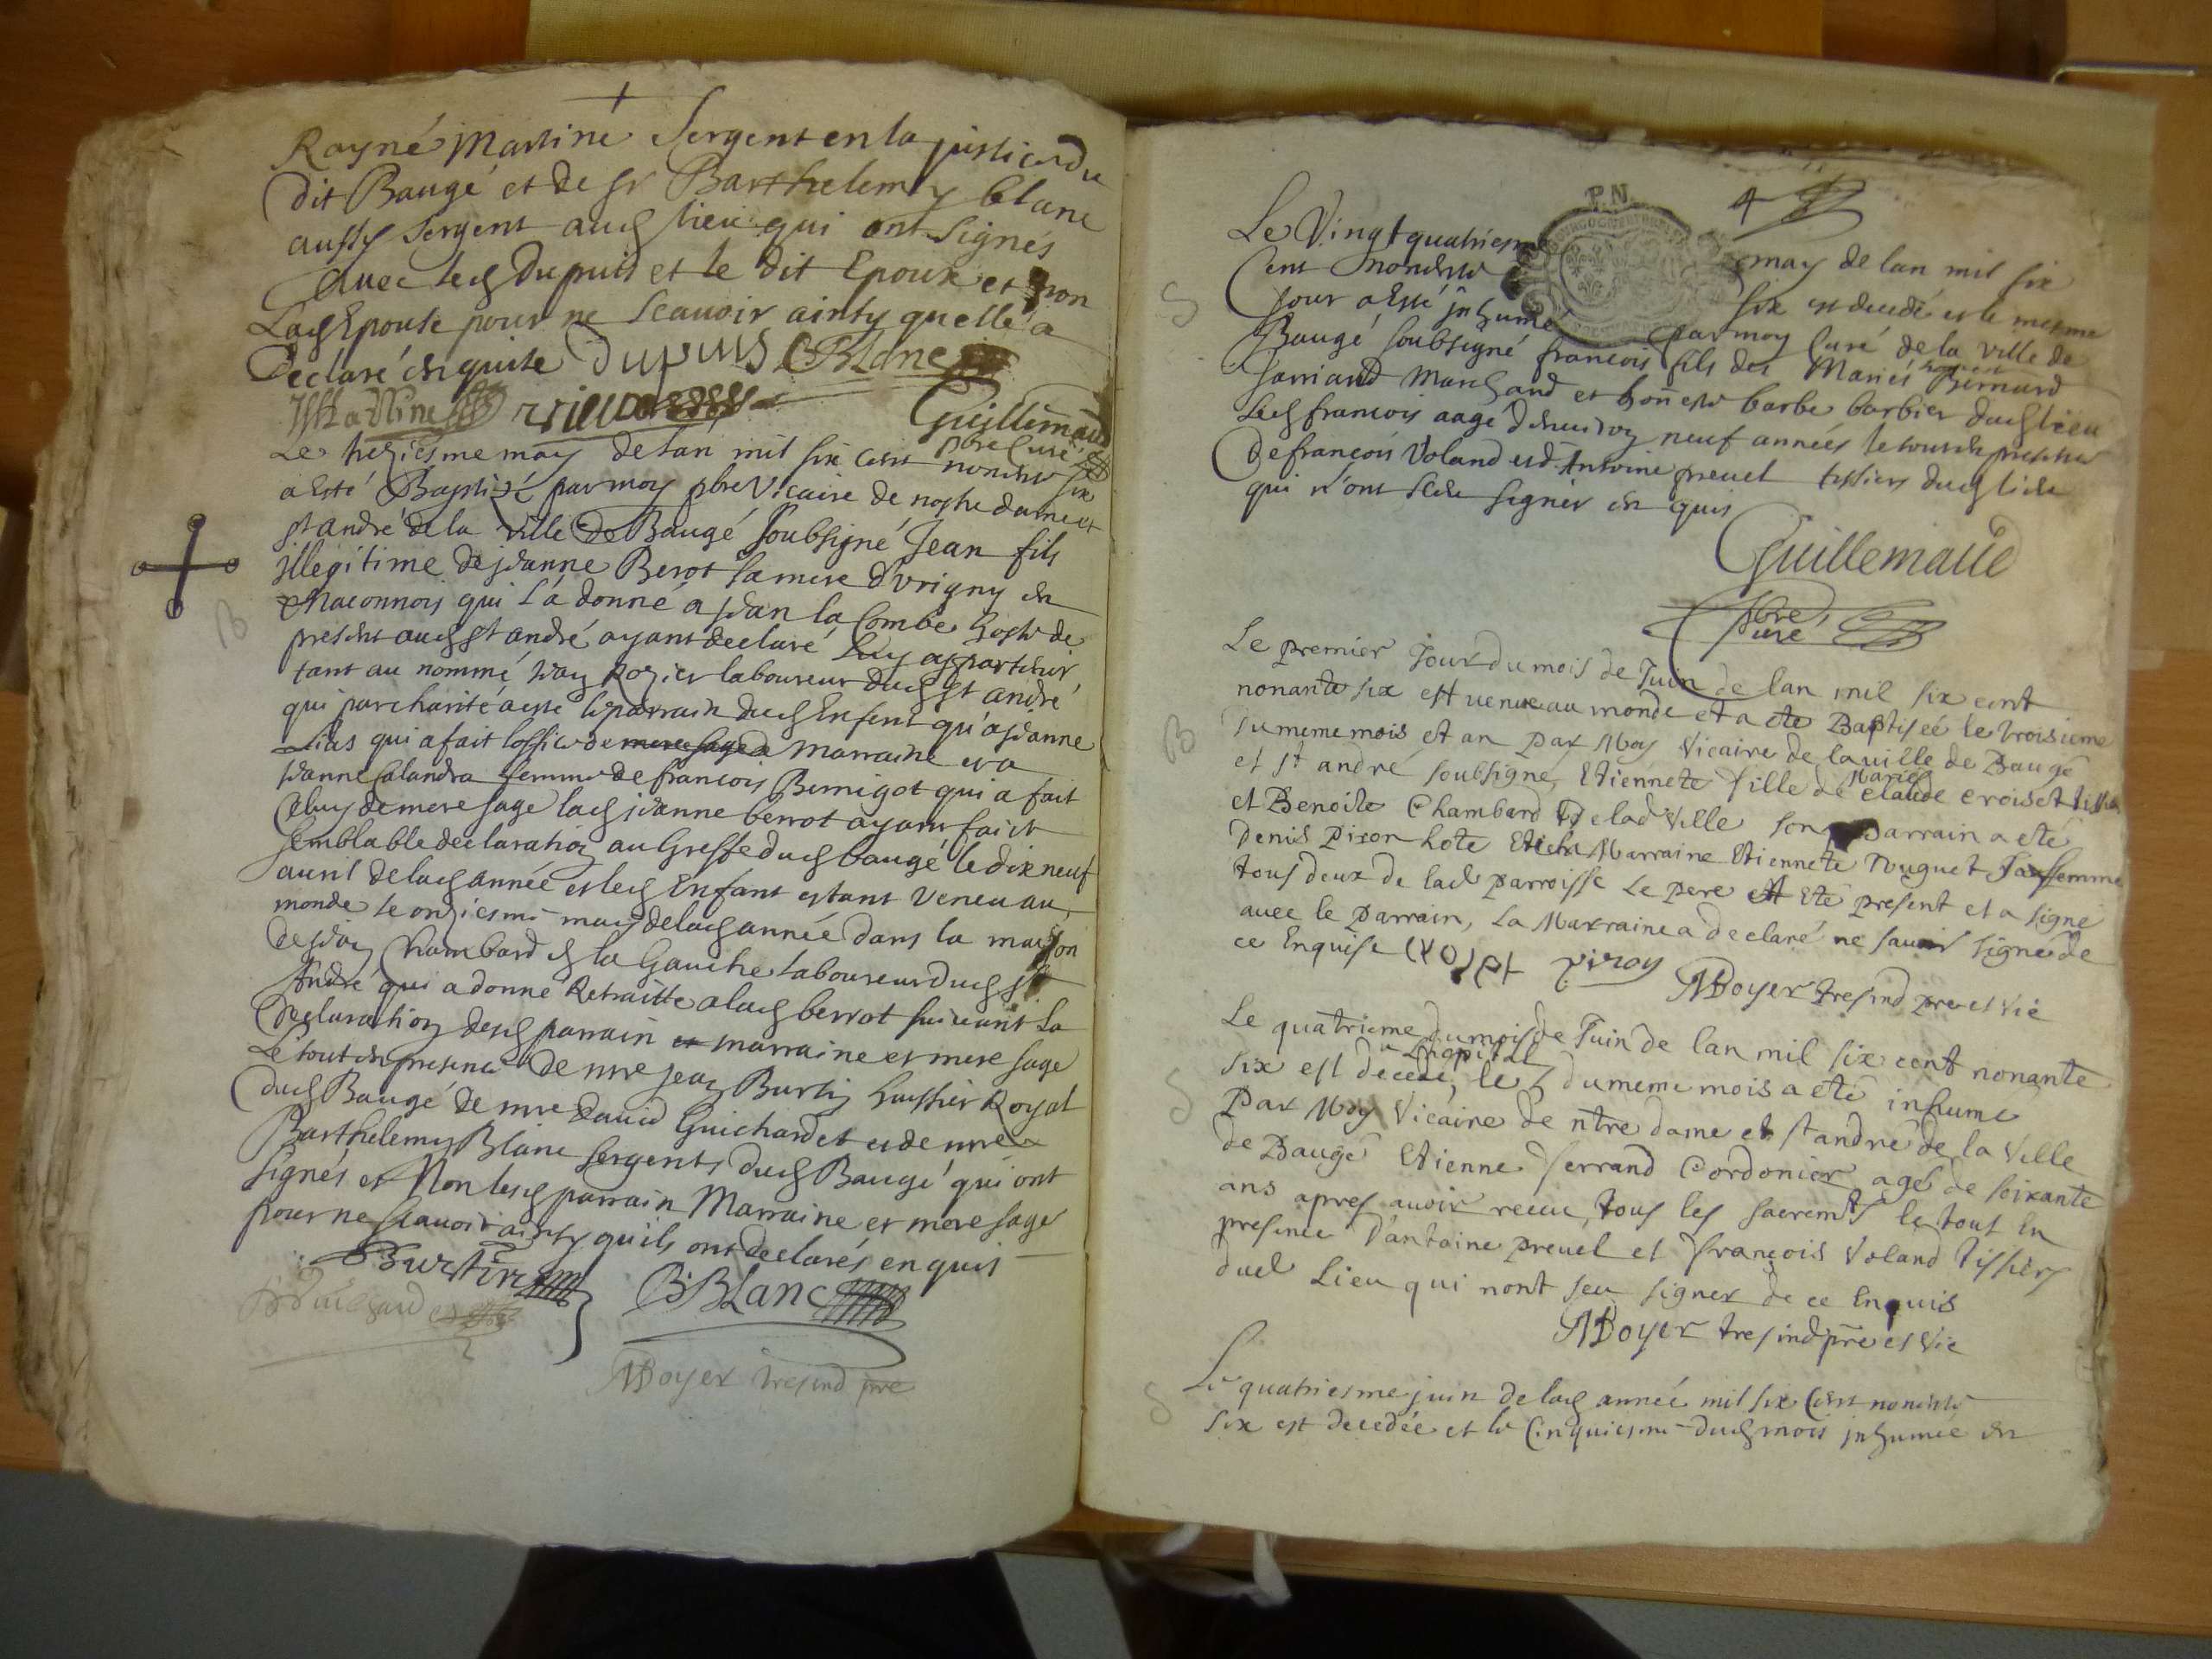 Rayné Martine Sergent en la justice du
dit Baugé et de sr Barthelemy blanc
aussy sergent aud lieu qui ont signés
avec led Dupuis et le dit Epoux et non
Lad Epouse pour ne scauoir ainsy quelle a
Declaré enquise Dupuis BBlanc
Martine
Guillemaud
pbre Curé
Le treziesme may de lan mil six cent nonente six
a esté Baptizé par moy pbre Vicaire de nostre dame et
st andré de la ville de Baugé soubsigné Jean fils
jllegitime de jeanne Berot sa mere d'vrigny en
Maconnois qui l'á donné a jean la Combe hoste de
present aud st andré ayant declaré luy appartenir
tant au nommé jean Rozier laboureur dud st andré
qui par charité a esté le parrain dud Enfent qu'a jeanne
Lias qui a fait loffice de mere sage Marraine et a
jeanne Calandra femme de francois Bernigot qui a fait
celuy de mere sage lad jeanne berrot ayant fait
semblable declaration au Greffe dud baugé le dix neuf
auril de lad année et led Enfant estant Veneu au
monde le onziesme may de lad année dans la maison
de jean Chambard d la Gauche laboureur dud st
André qui a donné Retraitte a lad berrot suiuant la
Declaration desd parrain et marraine et mere sage
Le tout en presence de mre jean Burtin huissier Royal
dud Baugé de mre dauid Guichardet et de mre
Barthelemy Blanc sergents dud Baugé qui ont
signés et Non lesd parrain Marraine et mere sage
pour ne scauoir ainsy quils ont declarés enquis
Burtin
BBLanc
Boyer presind pre
P.N.
4
Le Vingt quatriesme may de lan mil six
Cent nonente six est decedé et le mesme
jour a Esté jnhumé par moy Curé de la ville de
Baugé soubsigné francois fils des Mariés Bernard
Jarriand Marchand et honneste barbe barbier dud lieu
Led francois aagé denuiron neuf années le tout en presence
De francois Voland et d'Antoine preuel tissiers dud lieu
qui n'ont sceu signer en quis
Guillemaud
pbre
Curé
Le premier Jour du mois de Juin de lan mil six cent
nonante six est venue au monde et a ete Baptisée le troisieme
du meme mois et an par Moy Vicaire de la uille de Baugé
et st andré soubsigné, Etiennete fille de Mariés claude croiset tissier
et Benoite Chambard de lad Ville son parrain a eté
Denis Piron hote Et la Marraine Etiennete Nuguet sa femme
tous deux de lad parroisse Le pere Et ete present et a signé
auec le parrain, La Marraine a declaré ne sauoir signé de
ce Enquise croiset piron
Boyer presind pre et Vic
Le quatrieme du mois de Juin de lan mil six cent nonante
six est decedé, a Lhopital le 5 du meme mois a eté inhumé
Par Moy Vicaire de ntre dame et st andré de la Ville
de Baugé Etienne ferrand Cordonier agé de soixante
ans apres auoir receu tous les sacremts le tout en
presence Dantoine preuel et françois Voland tissiers
dud Lieu qui nont seu signer de ce Enquis
Boyer presind pre et Vic
Le quatriesme juin de lad année mil six Cent nonente
six est decedée et le Cinquiesme dud mois jnhumée en